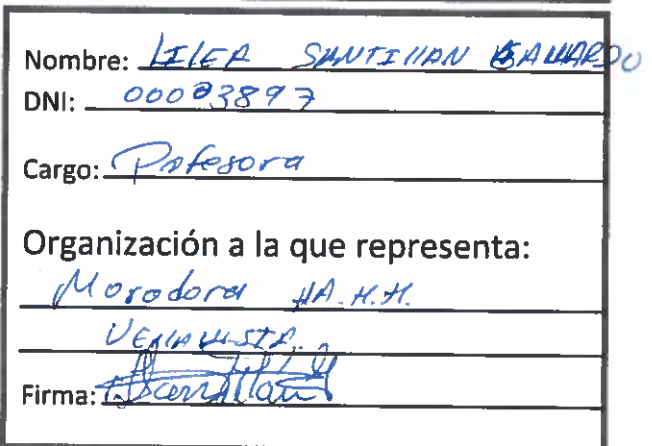 Nombre: LILEA SANTILLAN GALLARDO
DNI: 00003897
Cargo: Profesora
Organización a la que representa:
Moradora AA.H.H.
VELLAVISTA.
Firma: